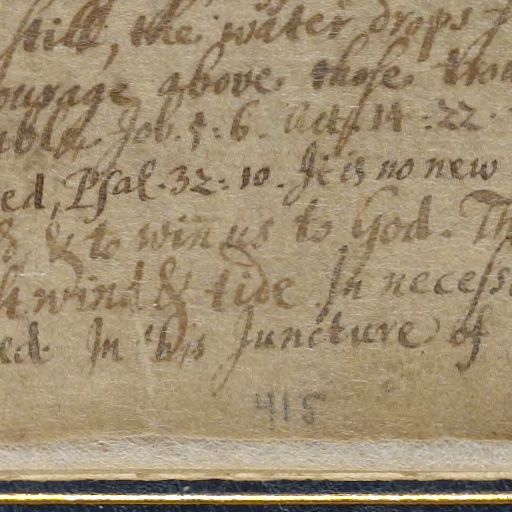 still, the water drops
ourage above those
uble Job. 5: 6. Act. 14: 22.
ed, Psal. 32: 10. It is no new
& to win us to God. Th
wind & tide In necess
ed. In this Juncture of
415